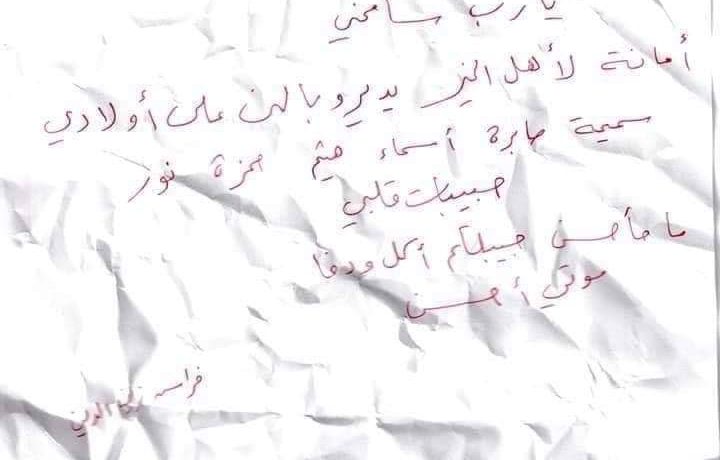 يا رب سامحني
أمانة لأهل الخير يديرو بالهن على أولادي
سمية صابرة أسماء هيثم حمزة نور
حبيبات قلبي
ما حأحسن جيبلكم أكل ودفا
موتي أحسن
فراس